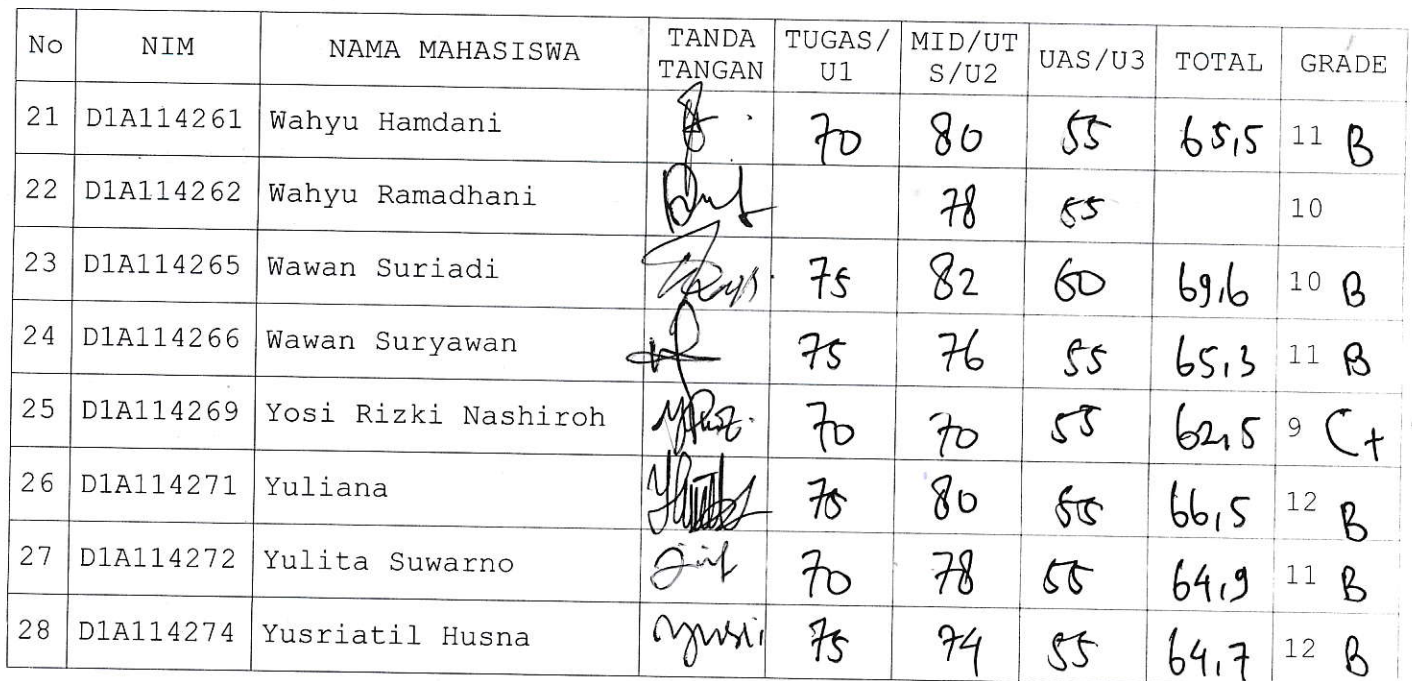 No NIM NAMA MAHASISWA TANDA TANGAN TUGAS/ U1 MID/UT S/U2 UAS/U3 TOTAL GRADE
21 D1A114261 Wahyu Hamdani 70 80 55 65,5 11 B
22 D1A114262 Wahyu Ramadhani 78 55 10
23 D1A114265 Wawan Suriadi 75 82 60 69,6 10 B
24 D1A114266 Wawan Suryawan 75 76 55 65,3 11 B
25 D1A114269 Yosi Rizki Nashiroh 70 70 55 62,5 9 C+
26 D1A114271 Yuliana 75 80 55 66,5 12 B
27 D1A114272 Yulita Suwarno 70 78 55 64,9 11 B
28 D1A114274 Yusriatil Husna 75 74 55 64,7 12 B